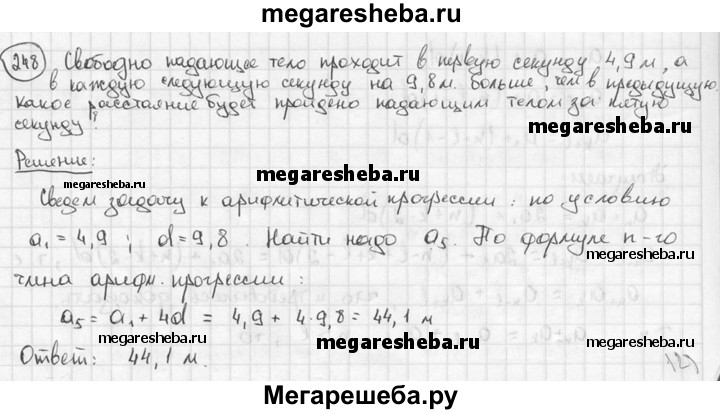 megaresheba.ru
248 Свободно падающее тело проходит в первую секунду 4,9 м, а
в каждую следующую секунду на 9,8 м. больше, чем в предыдущую.
какое расстояние будет пройдено падающим телом за пятую
секунду?
Решение:
megaresheba.ru
megaresheba.ru
Сведем задачу к арифметической прогрессии: по условию
a₁ = 4,9 ; d = 9,8 . Найти надо a₅. По формуле n-го
megaresheba.ru
члена арифм. прогрессии :
a₅ = a₁ + 4d = 4,9 + 4·9,8 = 44,1 м
megaresheba.ru
megaresheba.ru
Ответ: 44,1 м.
Мегарешеба.ру